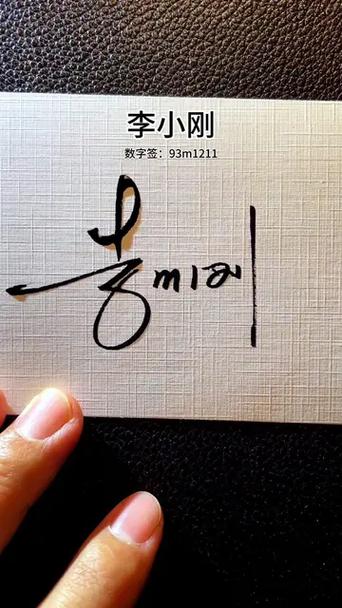 李小刚
数字签：93m1211